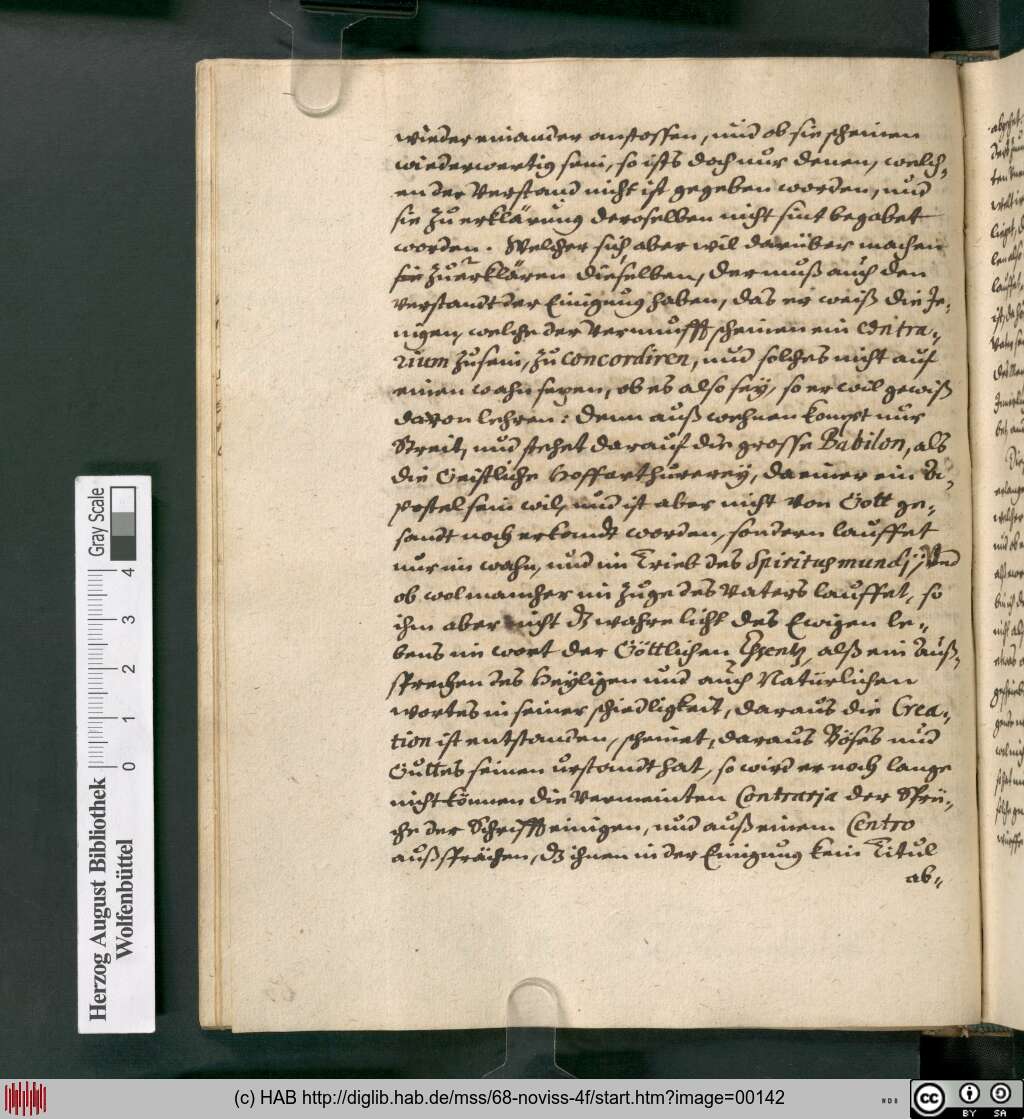 wieder einander anstossen, und ob sie scheinen
wiederwertig sein, so ists doch nur denen, welch=
en der Verstand nicht ist gegeben worden, und
sie zu erklärung deroselben nicht sint begabet
worden. Welcher sich aber wil darüber machen
sie zu erklären dieselben, der muß auch den
Verstandt der Einigung haben, das er weiß die Je=
nigen, welche der Vernunfft scheinen ein contra=
rium zu sein, zu concordiren, und solches nicht auf
einen wahn sezen, ob es also sey, so er wil gewiß
davon lehren: Denn auß wehnen kompt nur
Streit, und stehet darauf die grosse Babilon, als
die Geistliche Hoffart hurerey, da einer ein A=
postel sein wil, und ist aber nicht von Gott ge=
sandt noch erkandt worden, sondern lauffet
nur im wahn, und im Trieb des Spiritus mundj, Und
ob wol mancher im Zuge des Vaters lauffet, so
ihm aber nicht dz wahre licht des Ewigen le=
bens im wort der Göttlichen, alß ein Auß=
sprechen des Heyligen und auch Natürlichen
wortes in seiner schiedligkeit, daraus die Crea=
tion ist entstanden, scheinet, daraus Böses und
Guttes seinen urstandt hat, so wird er noch lange
nicht können die Vermeinten Contrarja der Sprü=
che der Schrifft einigen, und auß einem Centro
außsprächen, dz ihnen in der Einigung kein Titul
ab=
Herzog August Bibliothek
Wolfenbüttel
0 1 2 3 4
Gray Scale
(c) HAB http://diglib.hab.de/mss/68-noviss-4f/start.htm?image=00142
cc BY SA